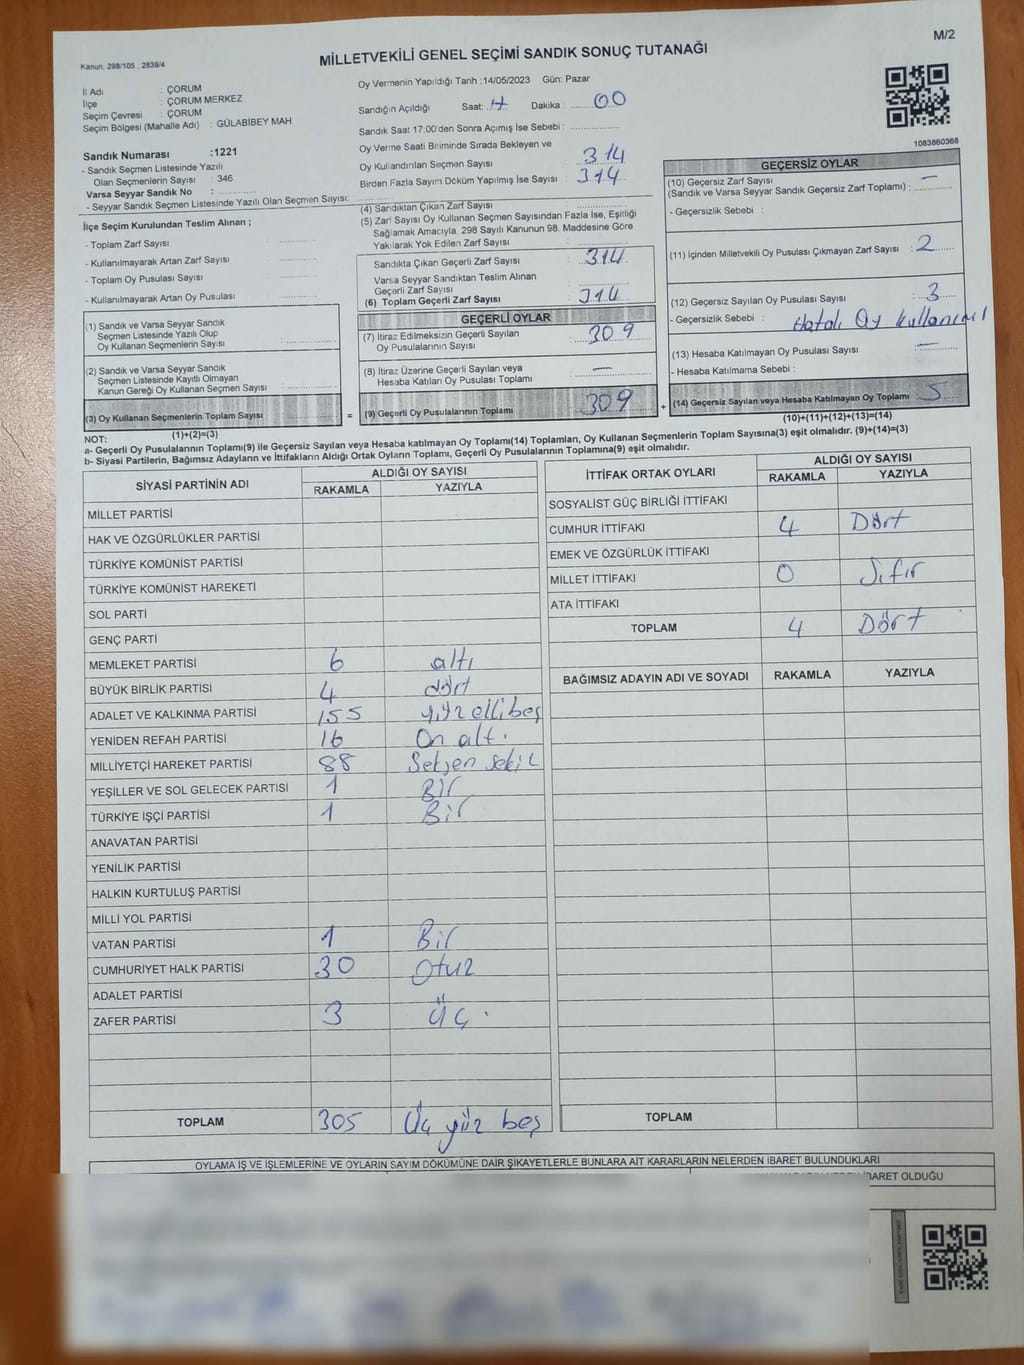 M/2
Kanun: 298/105 , 2839/4
MİLLETVEKİLİ GENEL SEÇİMİ SANDIK SONUÇ TUTANAĞI
İl Adı : ÇORUM
İlçe : ÇORUM MERKEZ
Seçim Çevresi : ÇORUM
Seçim Bölgesi (Mahalle Adı) : GÜLABİBEY MAH
Sandık Numarası :1221
- Sandık Seçmen Listesinde Yazılı
Olan Seçmenlerin Sayısı : 346
Varsa Seyyar Sandık No :
- Seyyar Sandık Seçmen Listesinde Yazılı Olan Seçmen Sayısı:
Oy Vermenin Yapıldığı Tarih :14/05/2023 Gün: Pazar
Sandığın Açıldığı Saat: 17 Dakika : 00
Sandık Saat 17:00'den Sonra Açımış İse Sebebi :
Oy Verme Saati Bitiminde Sırada Bekleyen ve
Oy Kullandırılan Seçmen Sayısı : 314
Birden Fazla Sayım Döküm Yapılmış İse Sayısı : 314
1083860368
İlçe Seçim Kurulundan Teslim Alınan ;
- Toplam Zarf Sayısı
- Kullanılmayarak Artan Zarf Sayısı
- Toplam Oy Pusulası Sayısı
- Kullanılmayarak Artan Oy Pusulası
(1) Sandık ve Varsa Seyyar Sandık
Seçmen Listesinde Yazılı Olup
Oy Kullanan Seçmenlerin Sayısı :
(2) Sandık ve Varsa Seyyar Sandık
Seçmen Listesinde Kayıtlı Olmayan
Kanun Gereği Oy Kullanan Seçmen Sayısı :
(3) Oy Kullanan Seçmenlerin Toplam Sayısı
(1)+(2)=(3)
(4) Sandıktan Çıkan Zarf Sayısı
(5) Zarf Sayısı Oy Kullanan Seçmen Sayısından Fazla İse, Eşitliği
Sağlamak Amacıyla; 298 Sayılı Kanunun 98. Maddesine Göre
Yakılarak Yok Edilen Zarf Sayısı :
Sandıkta Çıkan Geçerli Zarf Sayısı : 314
Varsa Seyyar Sandıktan Teslim Alınan
Geçerli Zarf Sayısı
(6) Toplam Geçerli Zarf Sayısı : 314
GEÇERLİ OYLAR
(7) İtiraz Edilmeksizin Geçerli Sayılan
Oy Pusulalarının Sayısı : 309
(8) İtiraz Üzerine Geçerli Sayılan veya
Hesaba Katılan Oy Pusulası Toplamı : —
= (9) Geçerli Oy Pusulalarının Toplamı : 309
GEÇERSİZ OYLAR
(10) Geçersiz Zarf Sayısı
(Sandık ve Varsa Seyyar Sandık Geçersiz Zarf Toplamı) : —
- Geçersizlik Sebebi :
(11) İçinden Milletvekili Oy Pusulası Çıkmayan Zarf Sayısı : 2
(12) Geçersiz Sayılan Oy Pusulası Sayısı : 3
- Geçersizlik Sebebi : Hatalı Oy kullanımı
(13) Hesaba Katılmayan Oy Pusulası Sayısı : —
- Hesaba Katılmama Sebebi :
+ (14) Geçersiz Sayılan veya Hesaba Katılmayan Oy Toplamı : 5
(10)+(11)+(12)+(13)=(14)
NOT:
a- Geçerli Oy Pusulalarının Toplamı(9) ile Geçersiz Sayılan veya Hesaba katılmayan Oy Toplamı(14) Toplamları, Oy Kullanan Seçmenlerin Toplam Sayısına(3) eşit olmalıdır. (9)+(14)=(3)
b- Siyasi Partilerin, Bağımsız Adayların ve İttifakların Aldığı Ortak Oyların Toplamı, Geçerli Oy Pusulalarının Toplamına(9) eşit olmalıdır.
SİYASİ PARTİNİN ADI ALDIĞI OY SAYISI
RAKAMLA YAZIYLA
MİLLET PARTİSİ
HAK VE ÖZGÜRLÜKLER PARTİSİ
TÜRKİYE KOMÜNİST PARTİSİ
TÜRKİYE KOMÜNİST HAREKETİ
SOL PARTİ
GENÇ PARTİ
MEMLEKET PARTİSİ 6 altı
BÜYÜK BİRLİK PARTİSİ 4 dört
ADALET VE KALKINMA PARTİSİ 155 yüz elli beş
YENİDEN REFAH PARTİSİ 16 On altı
MİLLİYETÇİ HAREKET PARTİSİ 88 Seksen sekiz
YEŞİLLER VE SOL GELECEK PARTİSİ 1 Bir
TÜRKİYE İŞÇİ PARTİSİ 1 Bir
ANAVATAN PARTİSİ
YENİLİK PARTİSİ
HALKIN KURTULUŞ PARTİSİ
MİLLİ YOL PARTİSİ
VATAN PARTİSİ 1 Bir
CUMHURİYET HALK PARTİSİ 30 Otuz
ADALET PARTİSİ
ZAFER PARTİSİ 3 Üç
TOPLAM 305 Üç yüz beş
İTTİFAK ORTAK OYLARI ALDIĞI OY SAYISI
RAKAMLA YAZIYLA
SOSYALİST GÜÇ BİRLİĞİ İTTİFAKI
CUMHUR İTTİFAKI 4 Dört
EMEK VE ÖZGÜRLÜK İTTİFAKI
MİLLET İTTİFAKI 0 Sıfır
ATA İTTİFAKI
TOPLAM 4 Dört
BAĞIMSIZ ADAYIN ADI VE SOYADI RAKAMLA YAZIYLA
TOPLAM
OYLAMA İŞ VE İŞLEMLERİNE VE OYLARIN SAYIM DÖKÜMÜNE DAİR ŞİKAYETLERLE BUNLARA AİT KARARLARIN NELERDEN İBARET BULUNDUKLARI
İBARET OLDUĞU